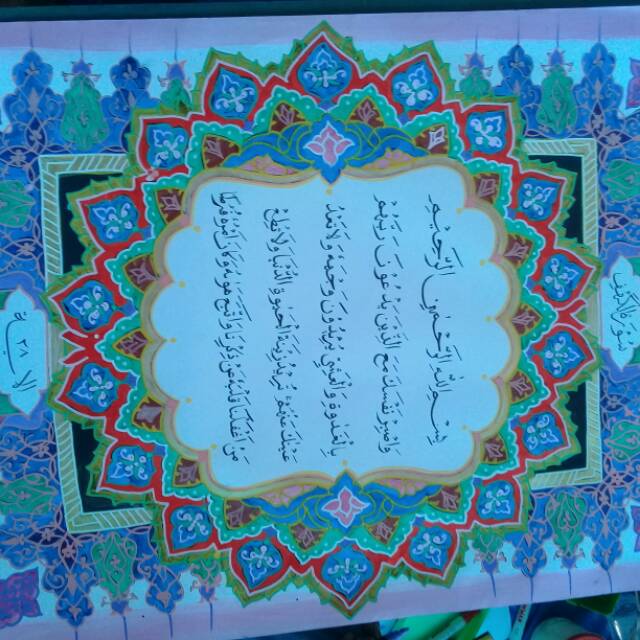 سُوْرَةُ الْكَهْفِ
بِسْمِ اللّٰهِ الرَّحْمٰنِ الرَّحِيْمِ
وَاصْبِرْ نَفْسَكَ مَعَ الَّذِيْنَ يَدْعُوْنَ رَبَّهُمْ
بِالْغَدٰوةِ وَالْعَشِيِّ يُرِيْدُوْنَ وَجْهَهٗ وَلَا تَعْدُ
عَيْنٰكَ عَنْهُمْ تُرِيْدُ زِيْنَةَ الْحَيٰوةِ الدُّنْيَا وَلَا تُطِعْ
مَنْ اَغْفَلْنَا قَلْبَهٗ عَنْ ذِكْرِنَا وَاتَّبَعَ هَوٰىهُ وَكَانَ اَمْرُهٗ فُرُطًا
٢٨